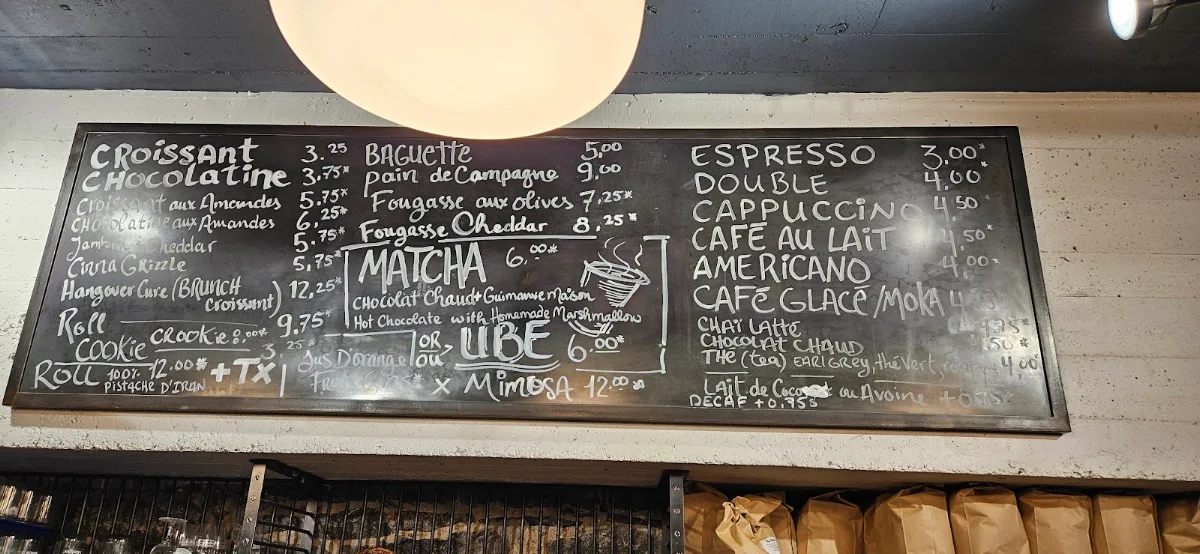 CROISSANT 3.25
CHOCOLATINE 3.75*
Croissant aux Amandes 5.75*
CHOcolatine aux Amandes 6,25*
Cheddar 5.75*
Cinna Grizzle 5,75*
Hangover Cure (BRUNCH Croissant) 12,25*
Roll 9.75*
COOKIE CROOKIE
ROLL 100% PISTACHE D'IRAN 12.00* + TX
BAGUETTE 5,00
pain de Campagne 9,00
Fougasse aux olives 7,25*
Fougasse Cheddar 8,25*
MATCHA 6,00*
CHOCOLAT Chaud + Guimauve Maison
Hot Chocolate with Homemade Marshmallow
OR
OU > UBE 6.00*
Jus D'orange
X MIMOSA 12.00*
ESPRESSO 3,00*
DOUBLE 4,00*
CAPPUCCINO 4,50*
CAFÉ AU LAIT 4,50*
AMERICANO 4,00*
CAFÉ GLACÉ/MOKA
CHAI LATTE
CHOCOLAT CHAUD
THÉ (tea) EARL GREY, thé Vert, 4,00
LAIT de Coco ou Avoine +0,75
DECAF +0,75$